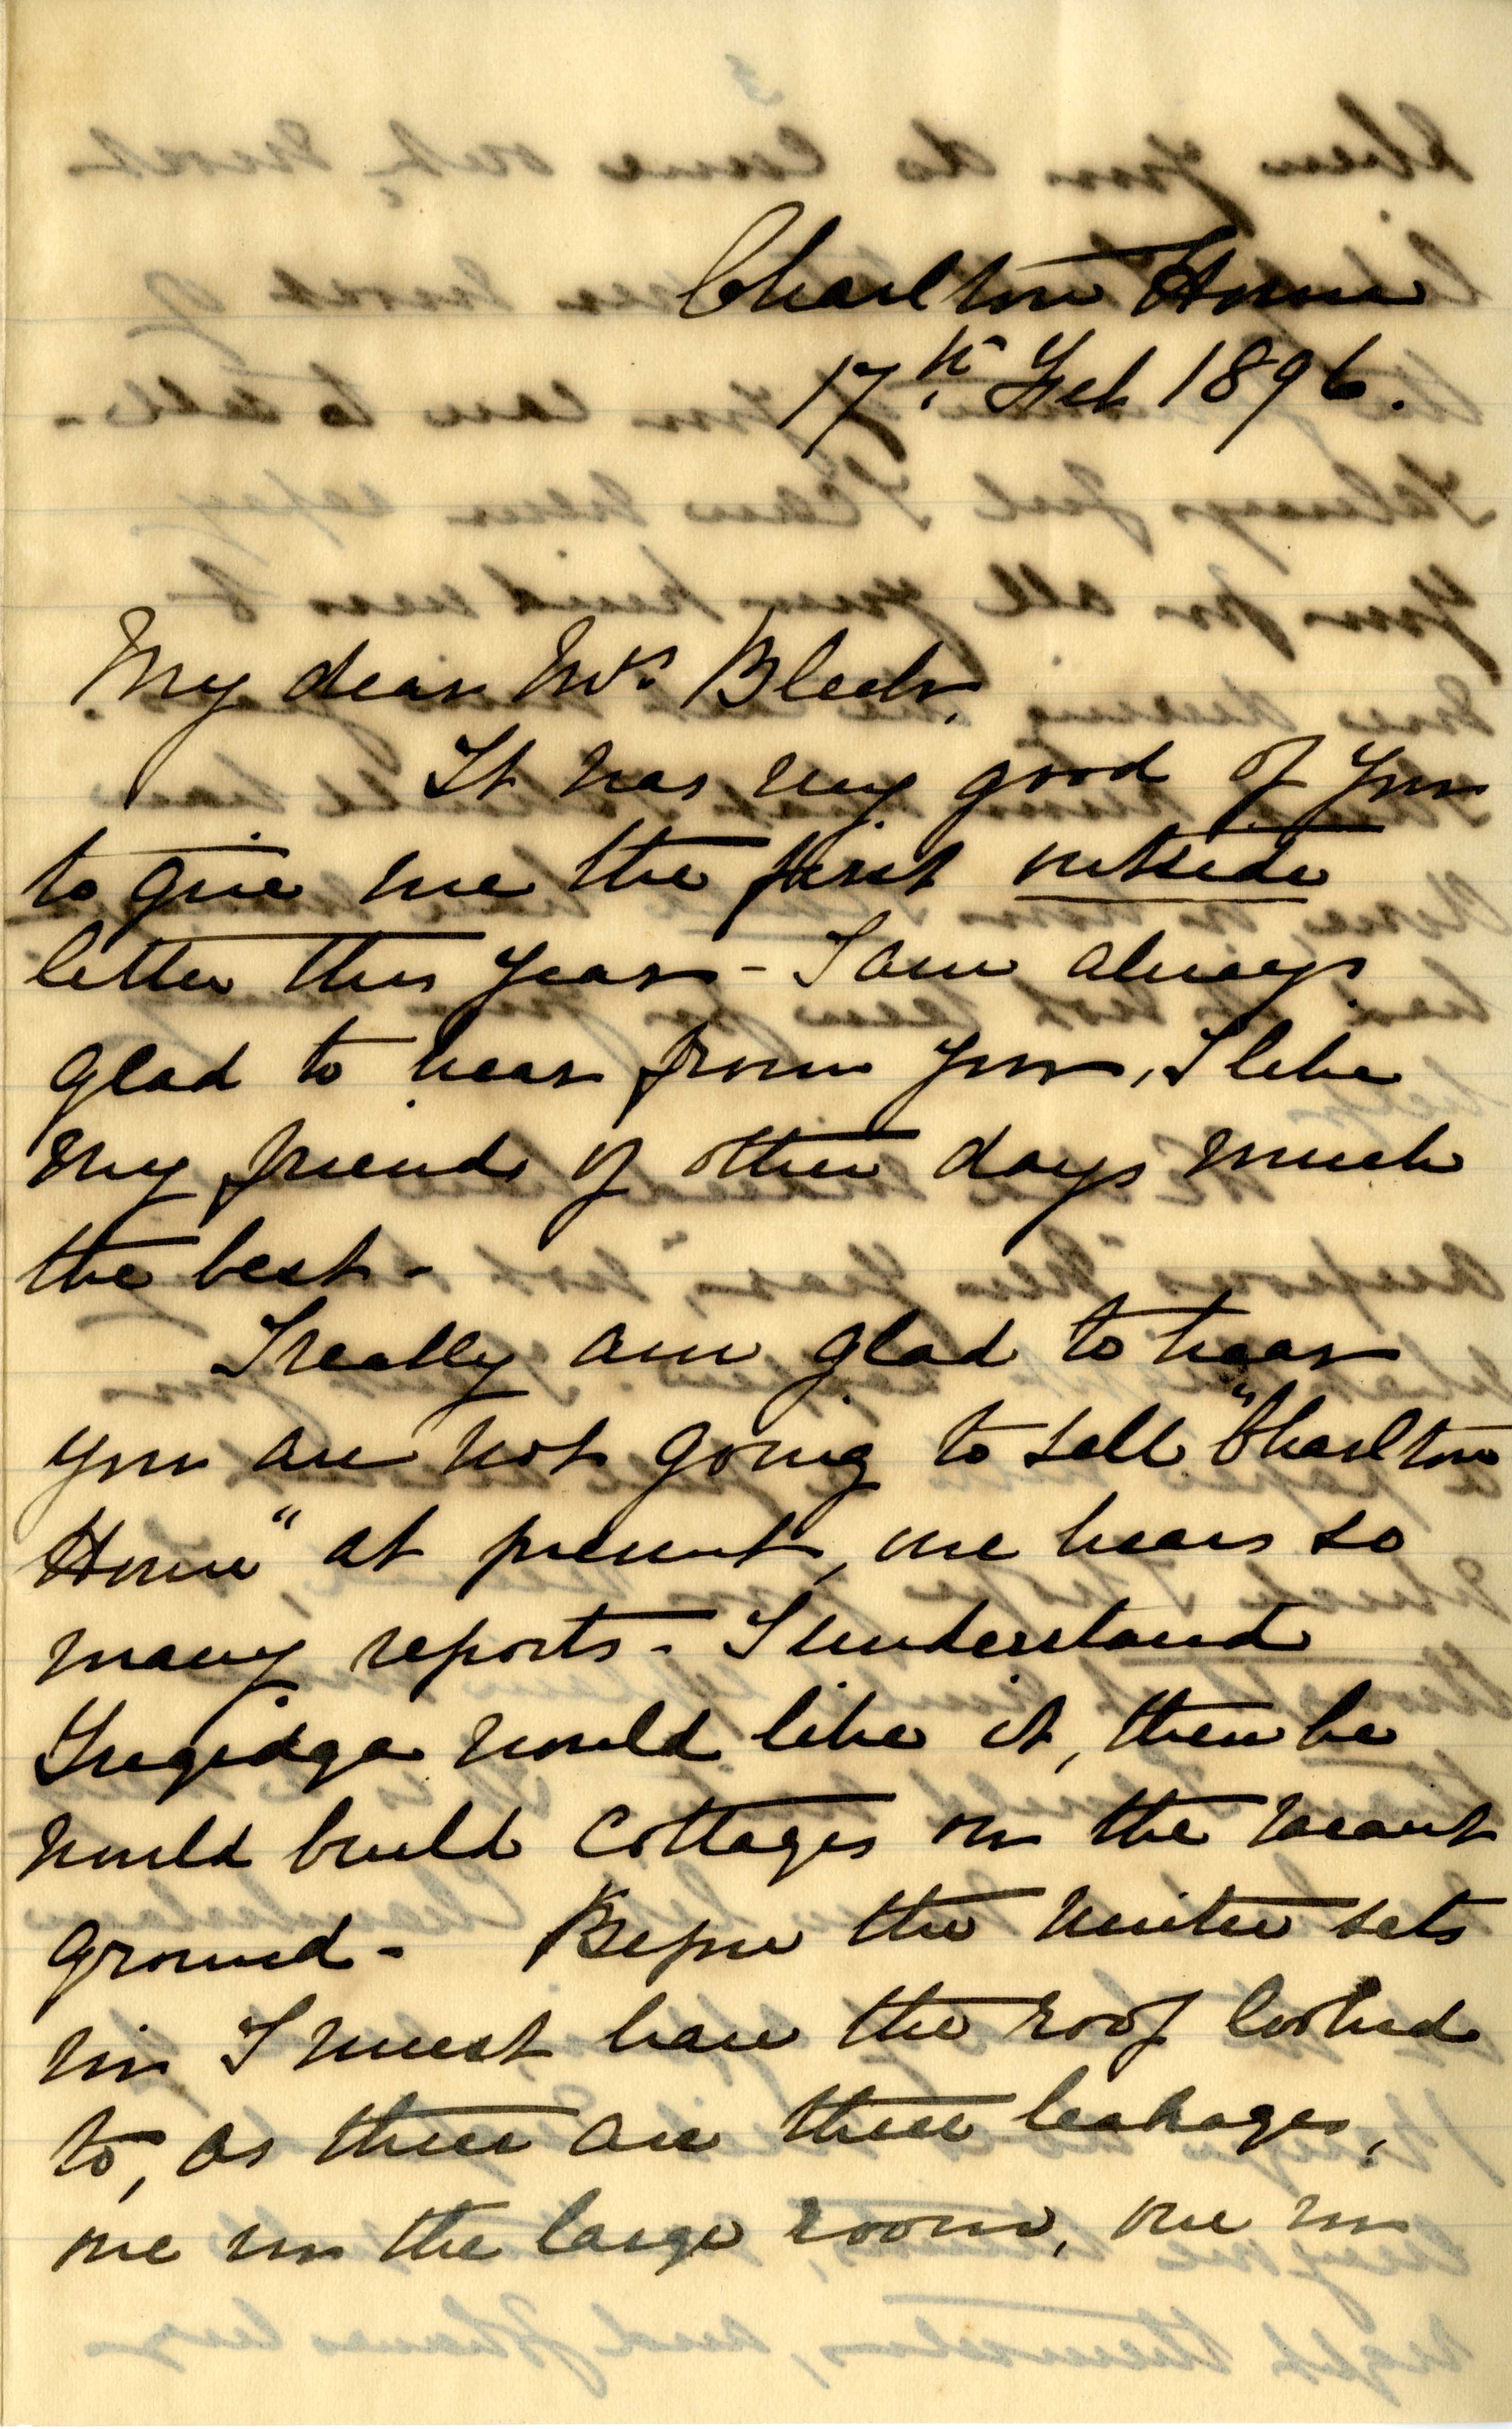 Charlton House
17th Feb 1896.
My dear Mrs Bleek,
It was very good of you
to give me the first outside
letter this year - I am always
glad to hear from you, I like
my friends of other days much
the best -
I really am glad to hear
you are not going to sell "Charlton
House" at present, one hears so
many reports - I understand
would like it, then he
would build cottages on the vacant
ground - Before the winter sets
in I must have the roof looked
to, as there are three leakages,
one in the large room, one in